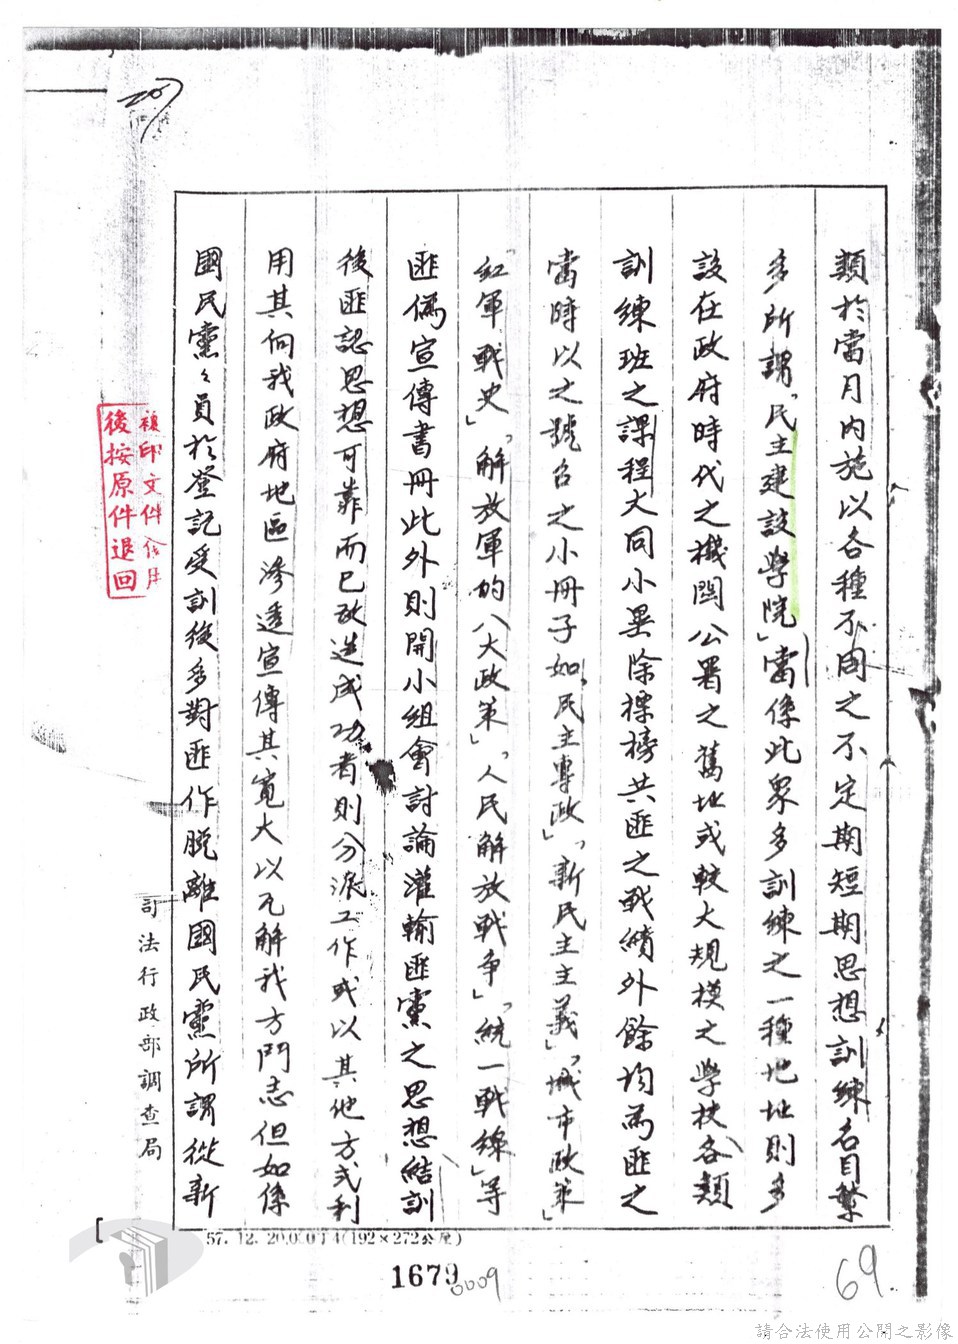 類於當月內施以各種不同之不定期短期思想訓練名目繁
多所謂「民主建設學院」當係此眾多訓練之一種地址則多
設在政府時代之機関公署之舊址或較大規模之學校各類
訓練班之課程大同小異除標榜共匪之戰績外餘均為匪之
當時以之號召之小冊子如「民主專政」「新民主主義」「城市政策」
「紅軍戰史」「解放軍的八大政策」「人民解放戰爭」「統一戰線」等
匪偽宣傳書冊此外則開小組會討論灌輸匪黨之思想結訓
後匪認思想可靠而已改造成功者則分派工作或以其他方式利
用其向我政府地區滲透宣傳其寬大以瓦解我方鬥志但如係
國民黨々員於登記受訓後多對匪作脫離國民黨所謂從新
司法行政部調查局
複印文件
後按原件退回
57.12.20,000 (192×272公厘)
1679
0009
69
請合法使用公開之影像